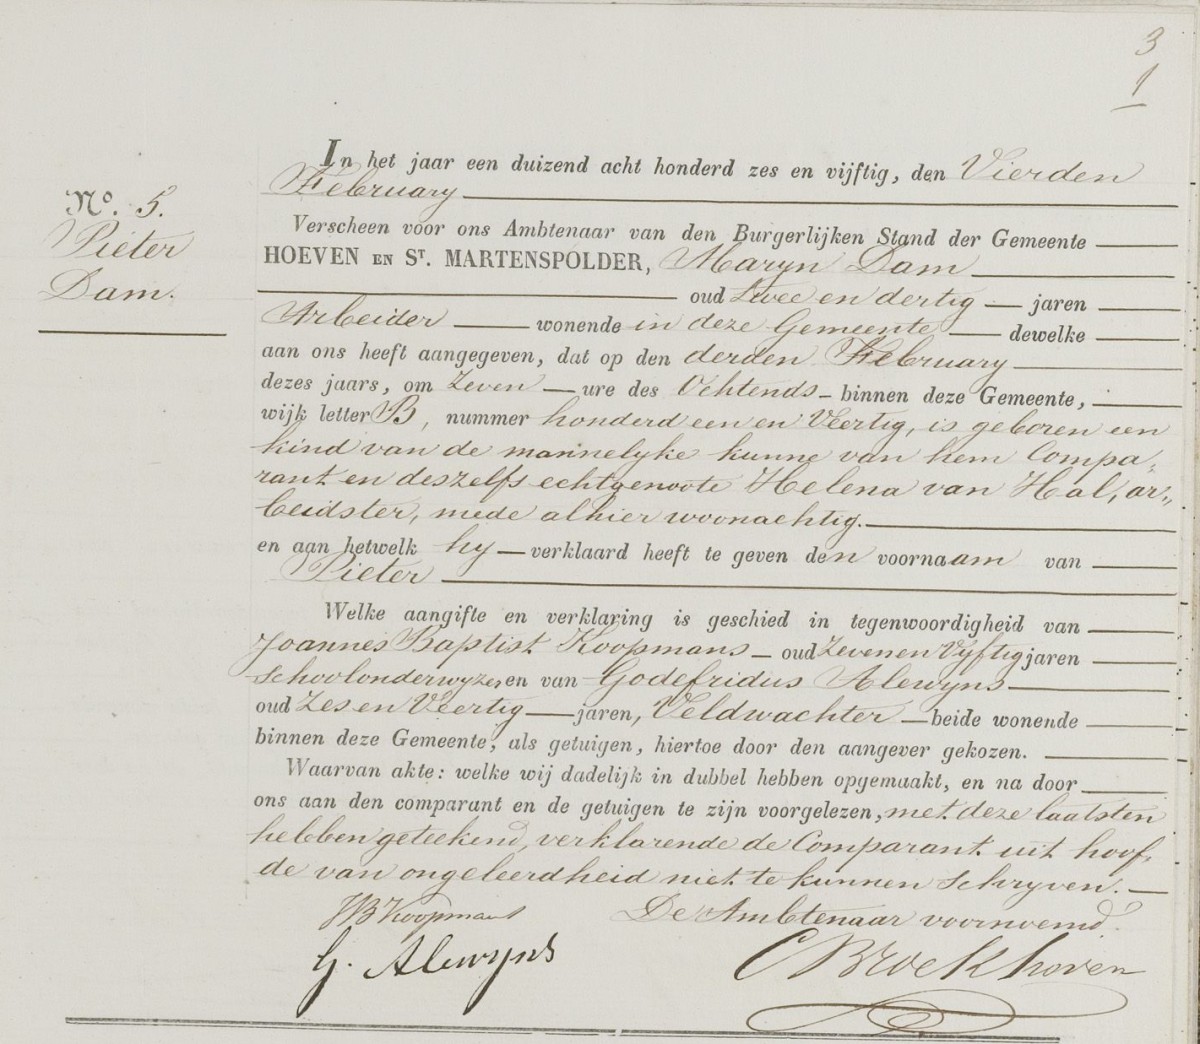 3
1
In het jaar een duizend acht honderd zes en vijftig, den Vierden
February
No. 5.
Pieter
Dam.
Verscheen voor ons Ambtenaar van den Burgerlijken Stand der Gemeente
HOEVEN EN ST. MARTENSPOLDER, Maryn Dam
oud Twee en dertig jaren
Arbeider wonende in deze Gemeente dewelke
aan ons heeft aangegeven, dat op den derden February
dezes jaars, om Zeven ure des Ochtends binnen deze Gemeente,
wijk letter B, nummer honderd een en Veertig, is geboren een
kind van de mannelyke kunne van hem Compa„
rant en deszelfs echtgenoote Helena van Hal, ar„
beidster, mede alhier woonachtig.
en aan hetwelk hy verklaard heeft te geven den voornaam van
Pieter
Welke aangifte en verklaring is geschied in tegenwoordigheid van
Joannes Baptist Koopmans oud Zeven en Vyftig jaren
Schoolonderwyzer, en van Godefridus Alewyns
oud Zes en Veertig jaren, Veldwachter beide wonende
binnen deze Gemeente, als getuigen, hiertoe door den aangever gekozen.
Waarvan akte: welke wij dadelijk in dubbel hebben opgemaakt, en na door
ons aan den comparant en de getuigen te zijn voorgelezen, met deze laatsten
hebben geteekend, verklarende de Comparant uit hoof„
de van ongeleerdheid niet te kunnen schryven.
JB Koopmans De Ambtenaar voornoemd.
G. Alewyns C Broekhoven